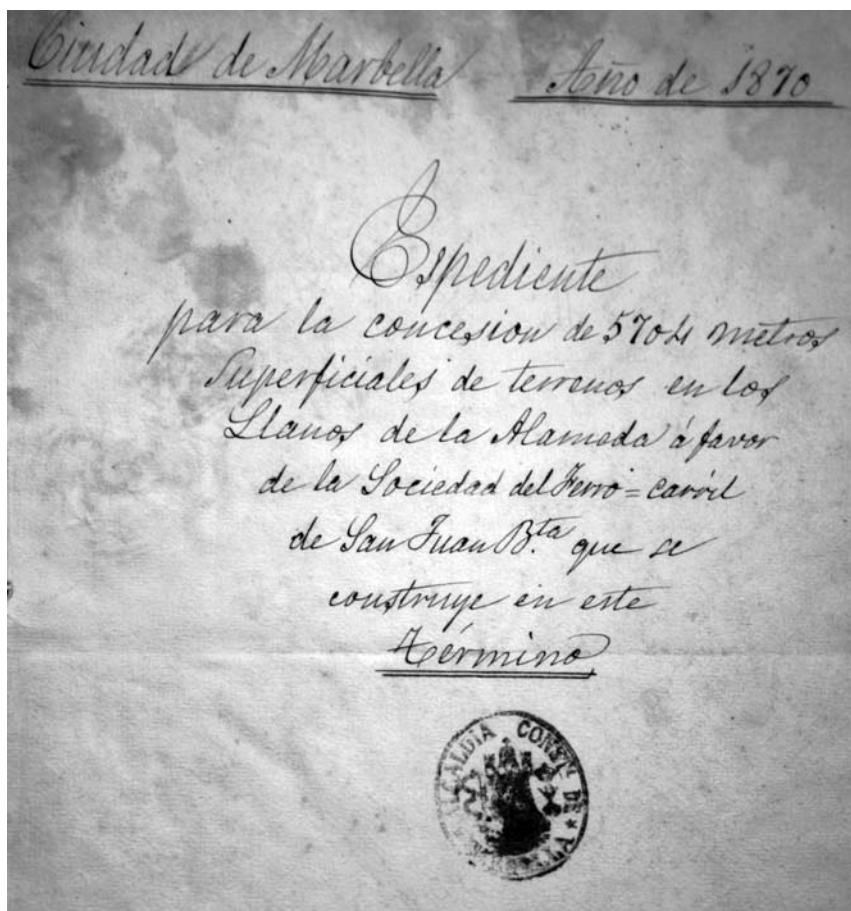 Ciudad de Marbella Año de 1870
Espediente
para la concesion de 5704 metros
Superficiales de terrenos en los
Llanos de la Alameda á favor
de la Sociedad del Ferro=carril
de San Juan B.ta que se
construye en este
Término
ALCALDIA CONSTL. DE